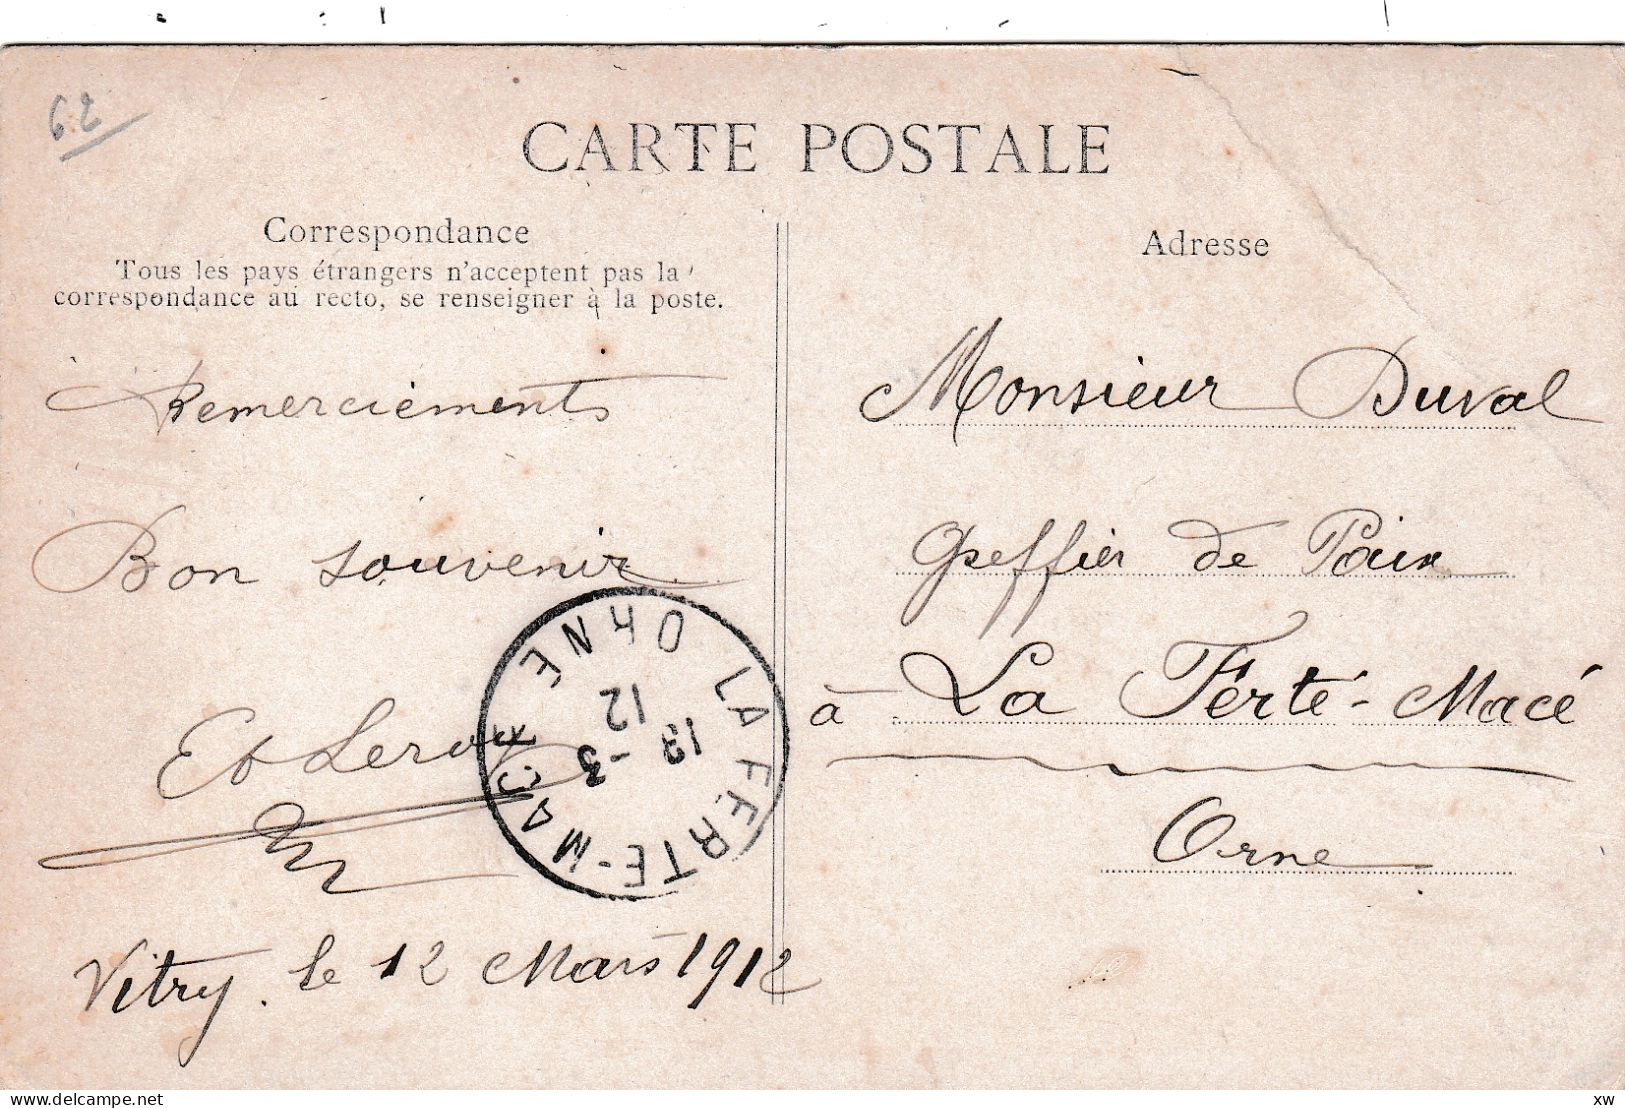 62
CARTE POSTALE
Correspondance
Tous les pays étrangers n'acceptent pas la
correspondance au recto, se renseigner à la poste.
Remerciements
Bon souvenir
Et Leroy
Vitry. le 12 Mars 1912
LA FERTE-MACE ORNE
13 -3
12
Adresse
Monsieur Duval
Greffier de Paix
à La Ferté-Macé
Orne
www.delcampe.net
xw